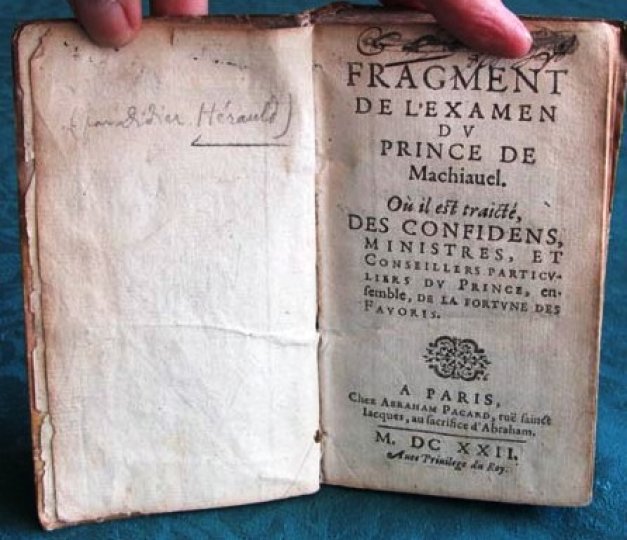 (par Didier Hérauld)
FRAGMENT
DE L'EXAMEN
DV
PRINCE DE
Machiauel.
Où il est traicté,
DES CONFIDENS,
MINISTRES, ET
CONSEILLERS PARTICV-
LIERS DV PRINCE, en-
semble, DE LA FORTVNE DES
FAVORIS.
A PARIS,
Chez ABRAHAM PACARD, ruë sainct
Iacques, au sacrifice d'Abraham.
M. DC XXII.
Auec Priuilege du Roy.